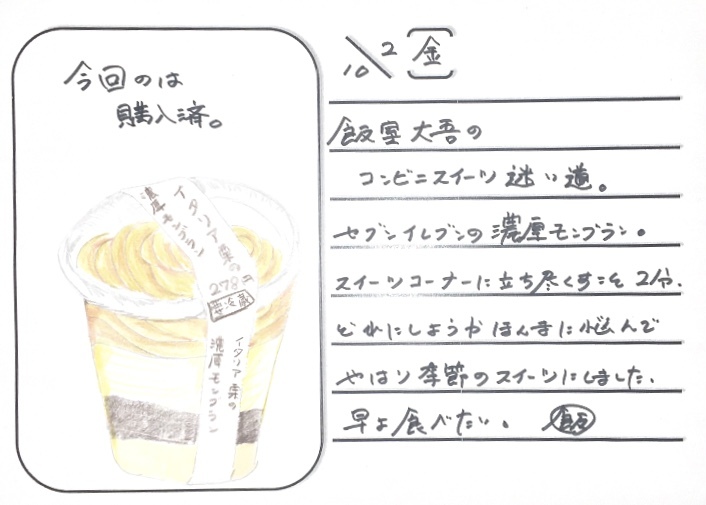 今回のは
購入済。
イタリア栗の
濃厚モンブラン
278円
要冷蔵
イタリア栗の
濃厚モンブラン
10/2 [金]
飯室大吾の
コンビニスイーツ迷い道。
セブンイレブンの濃厚モンブラン。
スイーツコーナーに立ち尽くすこと2分、
どれにしようかほんまに悩んで
やはり季節のスイーツにしました、
早よ食べたい。 飯